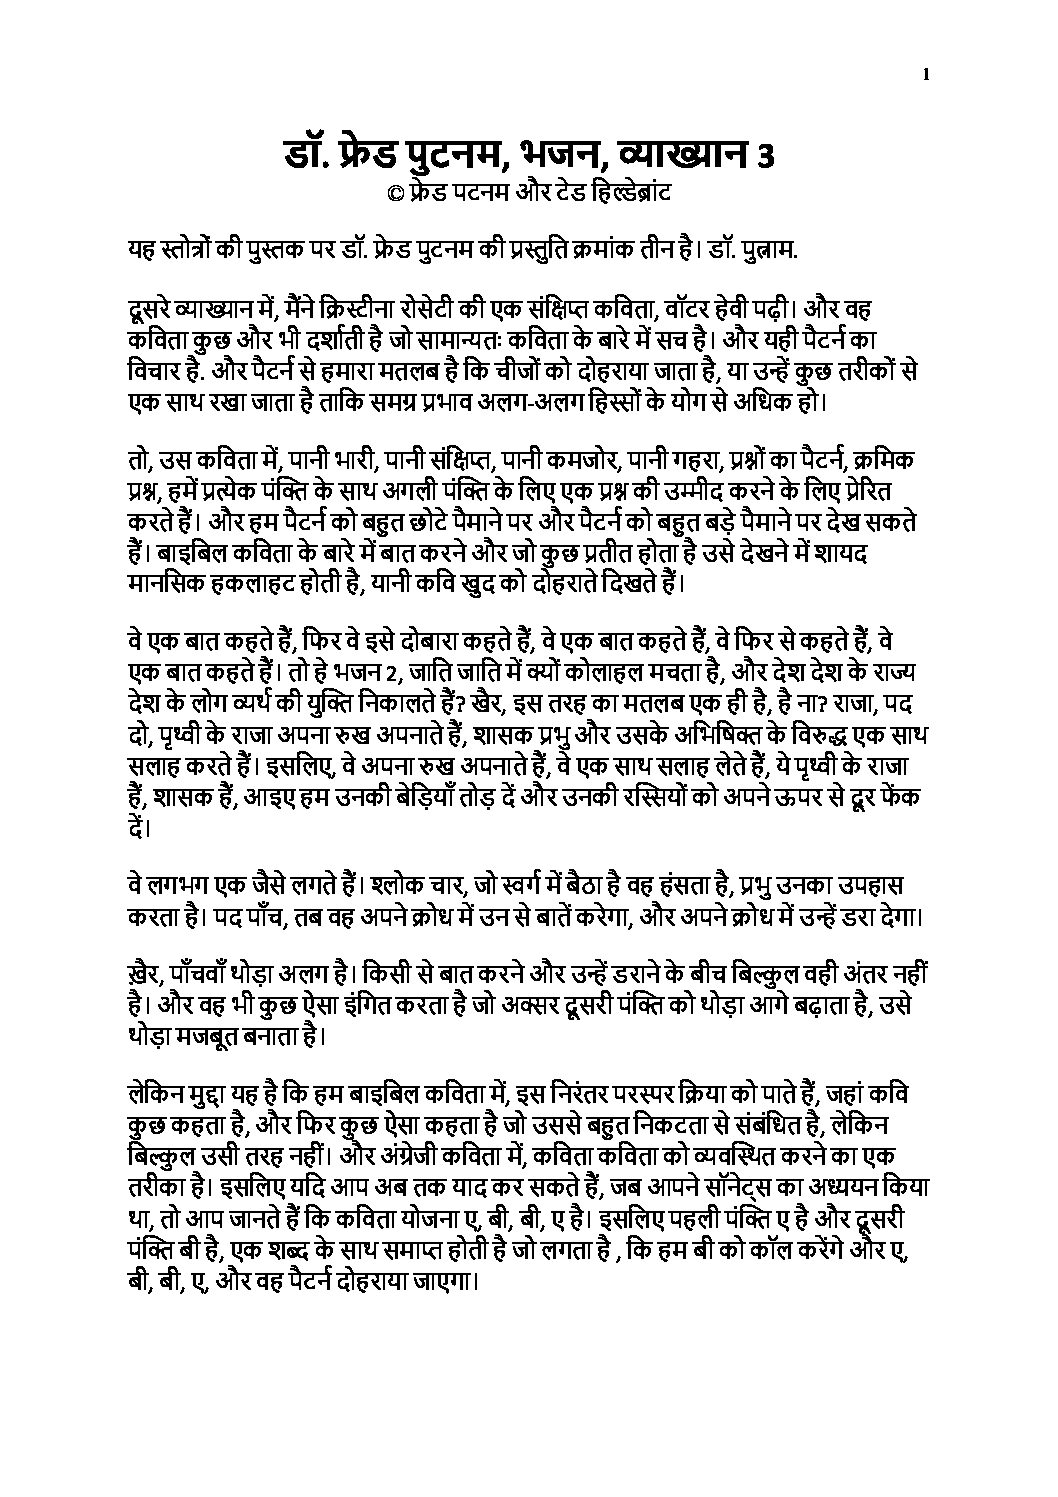 1
डॉ. फ्रेड पुटनम, भजन, व्याख्यान 3
© फ्रेड पटनम और टेड हिल्डेब्रांट
यह स्तोत्रों की पुस्तक पर डॉ. फ्रेड पुटनम की प्रस्तुति क्रमांक तीन है। डॉ. पुत्नाम.
दूसरे व्याख्यान में, मैंने क्रिस्टीना रोसेटी की एक संक्षिप्त कविता, वॉटर हेवी पढ़ी। और वह
कविता कुछ और भी दर्शाती है जो सामान्यतः कविता के बारे में सच है। और यही पैटर्न का
विचार है. और पैटर्न से हमारा मतलब है कि चीजों को दोहराया जाता है, या उन्हें कुछ तरीकों से
एक साथ रखा जाता है ताकि समग्र प्रभाव अलग-अलग हिस्सों के योग से अधिक हो।
तो, उस कविता में, पानी भारी, पानी संक्षिप्त, पानी कमजोर, पानी गहरा, प्रश्नों का पैटर्न, क्रमिक
प्रश्न, हमें प्रत्येक पंक्ति के साथ अगली पंक्ति के लिए एक प्रश्न की उम्मीद करने के लिए प्रेरित
करते हैं। और हम पैटर्न को बहुत छोटे पैमाने पर और पैटर्न को बहुत बड़े पैमाने पर देख सकते
हैं। बाइबिल कविता के बारे में बात करने और जो कुछ प्रतीत होता है उसे देखने में शायद
मानसिक हकलाहट होती है, यानी कवि खुद को दोहराते दिखते हैं।
वे एक बात कहते हैं, फिर वे इसे दोबारा कहते हैं, वे एक बात कहते हैं, वे फिर से कहते हैं, वे
एक बात कहते हैं। तो हे भजन 2, जाति जाति में क्यों कोलाहल मचता है, और देश देश के राज्य
देश के लोग व्यर्थ की युक्ति निकालते हैं? खैर, इस तरह का मतलब एक ही है, है ना? राजा, पद
दो, पृथ्वी के राजा अपना रुख अपनाते हैं, शासक प्रभु और उसके अभिषिक्त के विरुद्ध एक साथ
सलाह करते हैं। इसलिए, वे अपना रुख अपनाते हैं, वे एक साथ सलाह लेते हैं, ये पृथ्वी के राजा
हैं, शासक हैं, आइए हम उनकी बेड़ियाँ तोड़ दें और उनकी रस्सियों को अपने ऊपर से दूर फेंक
दें।
वे लगभग एक जैसे लगते हैं। श्लोक चार, जो स्वर्ग में बैठा है वह हंसता है, प्रभु उनका उपहास
करता है। पद पाँच, तब वह अपने क्रोध में उन से बातें करेगा, और अपने क्रोध में उन्हें डरा देगा।
ख़ैर, पाँचवाँ थोड़ा अलग है। किसी से बात करने और उन्हें डराने के बीच बिल्कुल वही अंतर नहीं
है। और वह भी कुछ ऐसा इंगित करता है जो अक्सर दूसरी पंक्ति को थोड़ा आगे बढ़ाता है, उसे
थोड़ा मजबूत बनाता है।
लेकिन मुद्दा यह है कि हम बाइबिल कविता में, इस निरंतर परस्पर क्रिया को पाते हैं, जहां कवि
कुछ कहता है, और फिर कुछ ऐसा कहता है जो उससे बहुत निकटता से संबंधित है, लेकिन
बिल्कुल उसी तरह नहीं। और अंग्रेजी कविता में, कविता कविता को व्यवस्थित करने का एक
तरीका है। इसलिए यदि आप अब तक याद कर सकते हैं, जब आपने सॉनेट्स का अध्ययन किया
था, तो आप जानते हैं कि कविता योजना ए, बी, बी, ए है। इसलिए पहली पंक्ति ए है और दूसरी
पंक्ति बी है, एक शब्द के साथ समाप्त होती है जो लगता है , कि हम बी को कॉल करेंगे और ए,
बी, बी, ए, और वह पैटर्न दोहराया जाएगा।